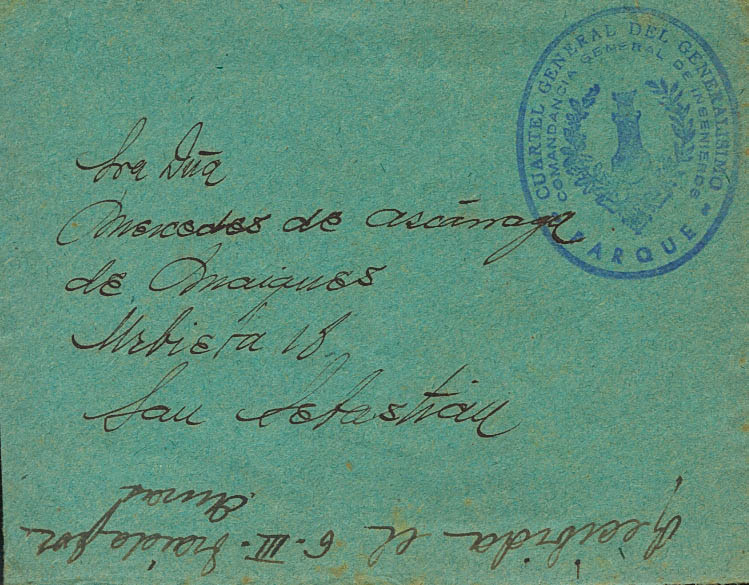 CUARTEL GENERAL DEL GENERALISIMO
COMANDANCIA GENERAL DE INGENIEROS
PARQUE
Sra Dña
Mercedes de Ascárraga
de Maigues
Urbieta 18
San Sebastian
Recibida el 6-III- traida por